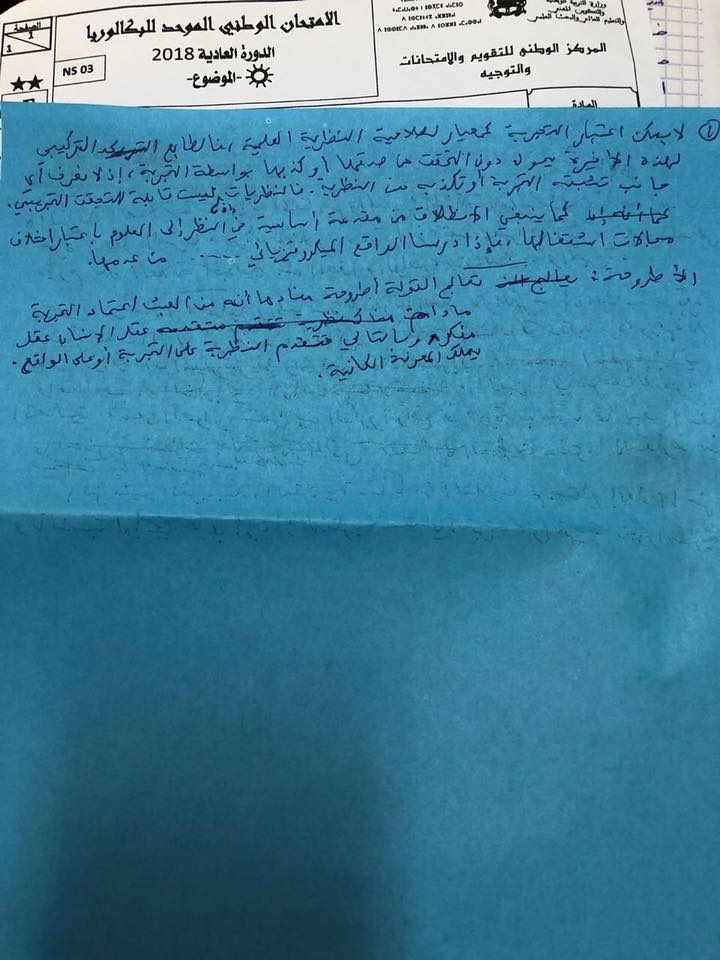 الصفحة
1
1
الامتحان الوطني الموحد للبكالوريا
الدورة العادية 2018
-الموضوع-
NS 03
المركز الوطني للتقويم والامتحانات
والتوجيه
المادة
1 لا يمكن اعتبار التجربة كمعيار لصلاحية النظرية العلمية، فالطابع التركيبي
لهذه الأخيرة يحول دون التحقق من صدقها أو كذبها بواسطة التجربة، إذ لا نعرف أي
جانب تثبته التجربة أو تكذبه من النظرية. فالنظريات ليست قابلة للتحقق التجريبي.
كما ينبغي الانطلاق من مقدمة أساسية في النظر إلى العلوم باعتبار اختلاف
مجالات اشتغالها، فإذا درسنا الواقع الميكروفيزيائي ..... من عدمها.
الأطروحة: تعالج القولة أطروحة مفادها أنه من العبث اعتماد التجربة
عقل الإنسان عقل
مفكر وبالتالي فتتقدم النظرية على التجربة أو على الواقع.
يملك المعرفة الكافية.